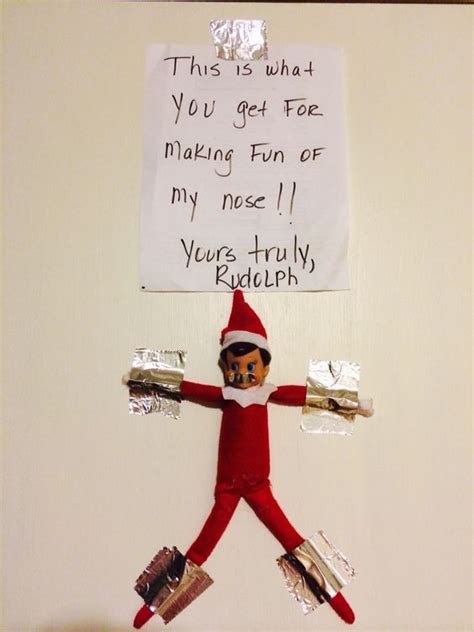 This is what
You get For
Making Fun of
my nose!!
Yours truly,
Rudolph